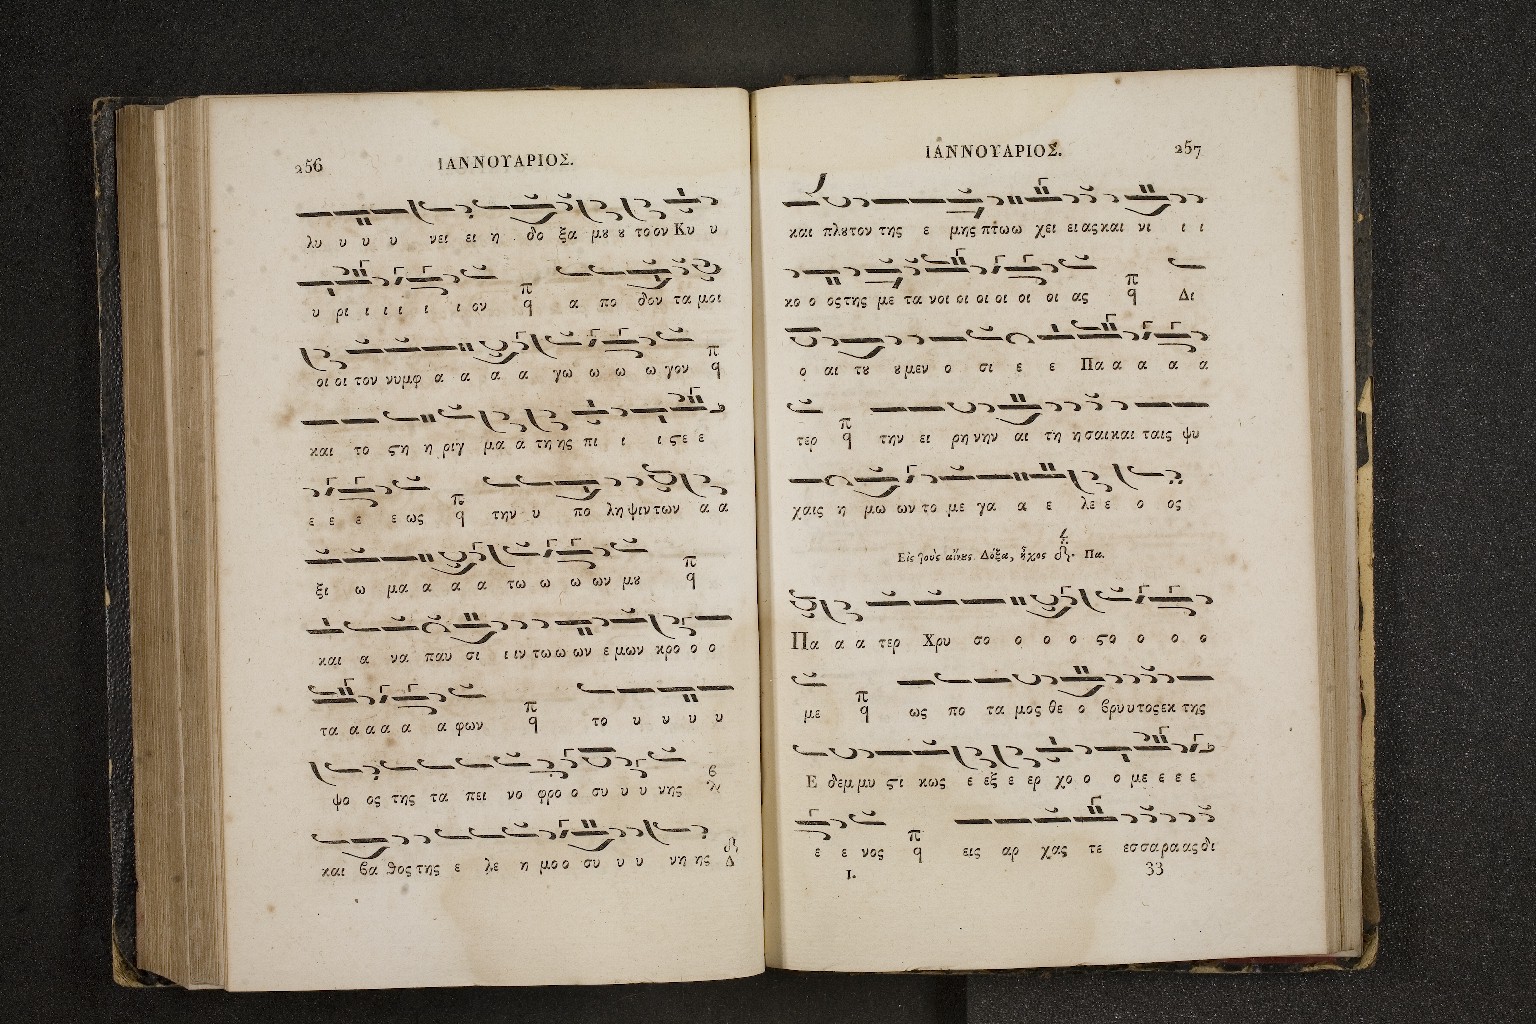 256 ΙΑΝΝΟΥΑΡΙΟΣ.
λυ υ υ υ νει ει η δο ξα μȣ ȣ το ον Κυ υ
υ ρι ι ι ι ι ι ον π q α πο δον τα μοι
οι οι τον νυμφ α α α α γω ω ω ω γον π q
και το ϛη η ριγ μα α τη ης πι ι ι ϛε ε
ε ε ε ε ως π q την υ πο λη ψιν των α α
ξι ω μα α α α τω ω ω ων μȣ π q
και α να παυ σι ι ιν τω ω ων ε μων κρο ο ο
τα α α α α α φων π q το υ υ υ υ
ψο ος της τα πει νο φρο ο συ υ υ νης
και βα θος της ε λε η μο ο συ υ υ νη ης Δ
ΙΑΝΝΟΥΑΡΙΟΣ. 257
και πλȣτον της ε μης πτω ω χει ει ας και νι ι ι
κο ο ος της με τα νοι οι οι οι οι οι ας π q Δι
ο αι τȣ ȣ μεν ο σι ε ε Πα α α α α
τερ π q την ει ρη νην αι τη η σαι και ταις ψυ
χαις η μω ων το με γα α ε λε ε ο ος
Εἰς τοὺς αἴνȣς. Δόξα, ἦχος Πα.
Πα α α τερ Χρυ σο ο ο ο ϛο ο ο ο
με π q ως πο τα μος θε ο βρυ υ τος εκ της
Ε δεμ μυ ϛι κως ε εξ ε ερ χο ο ο με ε ε ε
ε ε νος π q εις αρ χας τε εσ σα ρα ας δι
I. 33